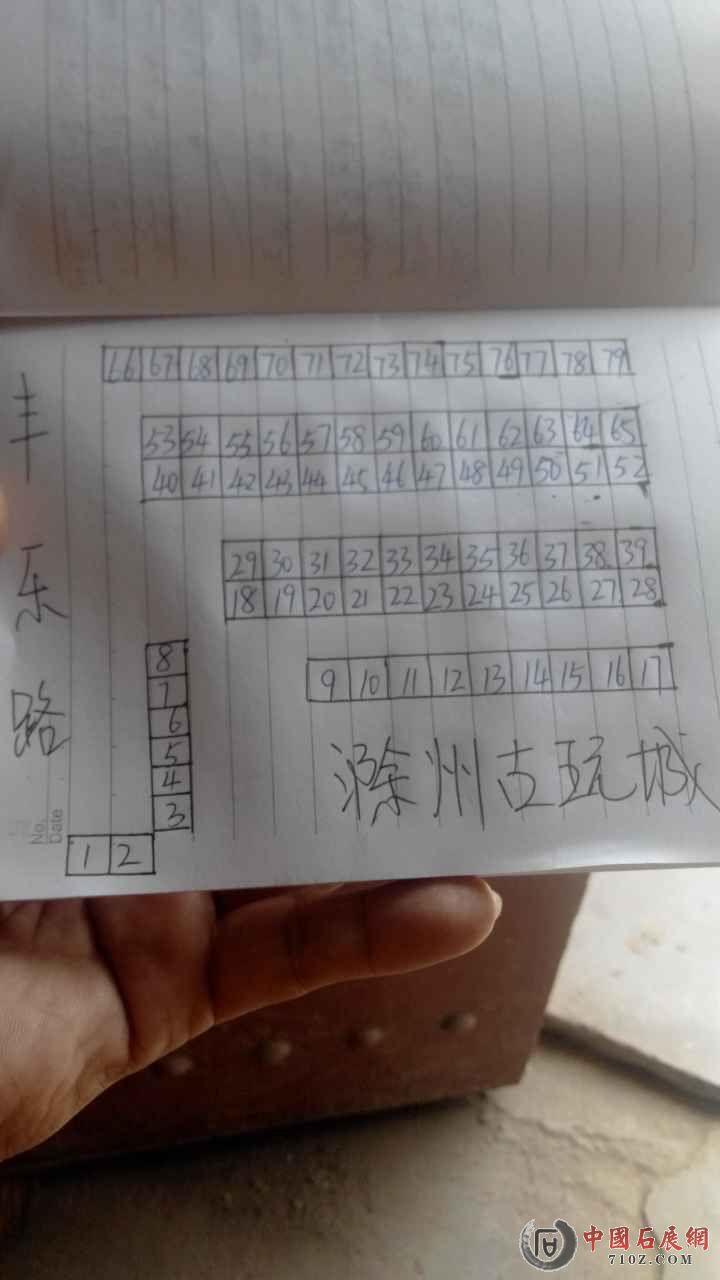 66 67 68 69 70 71 72 73 74 75 76 77 78 79
53 54 55 56 57 58 59 60 61 62 63 64 65
40 41 42 43 44 45 46 47 48 49 50 51 52
29 30 31 32 33 34 35 36 37 38 39
18 19 20 21 22 23 24 25 26 27 28
9 10 11 12 13 14 15 16 17
8
7
6
5
4
3
1 2
丰乐路
滁州古玩城
No.
Date
中國石展網
710Z.COM